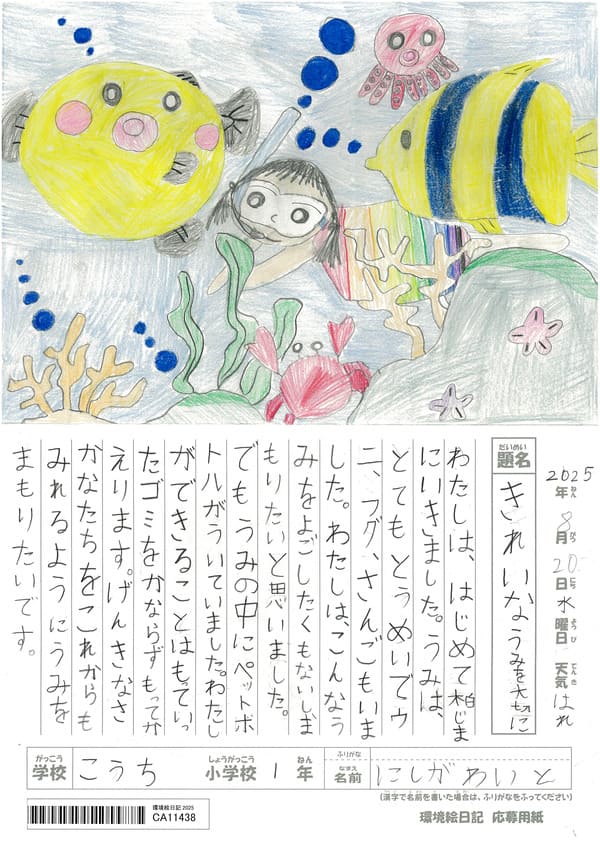 2025年8月20日水曜日 天気はれ
ねん がつ にち ようび てんき
だいめい
題名 きれいなうみを大切に
わたしは、はじめて柏じま
にいきました。うみは、
とてもとうめいでウ
ニ、フグ、さんごもいま
した。わたしはこんなう
みをよごしたくもないしま
もりたいと思いました。
でもうみの中にペットボ
トルがういていました。わたし
ができることはもっていっ
たゴミをかならずもってか
えります。げんきなさ
かなたちをこれからも
みれるようにうみを
まもりたいです。
がっこう しょうがっこう ねん ふりがな
学校 こうち 小学校 1 年 名前 にしが
なまえ
(漢字で名前を書いた場合は、ふりがなをふってください)
環境絵日記 2025
CA11438
環境絵日記 応募用紙